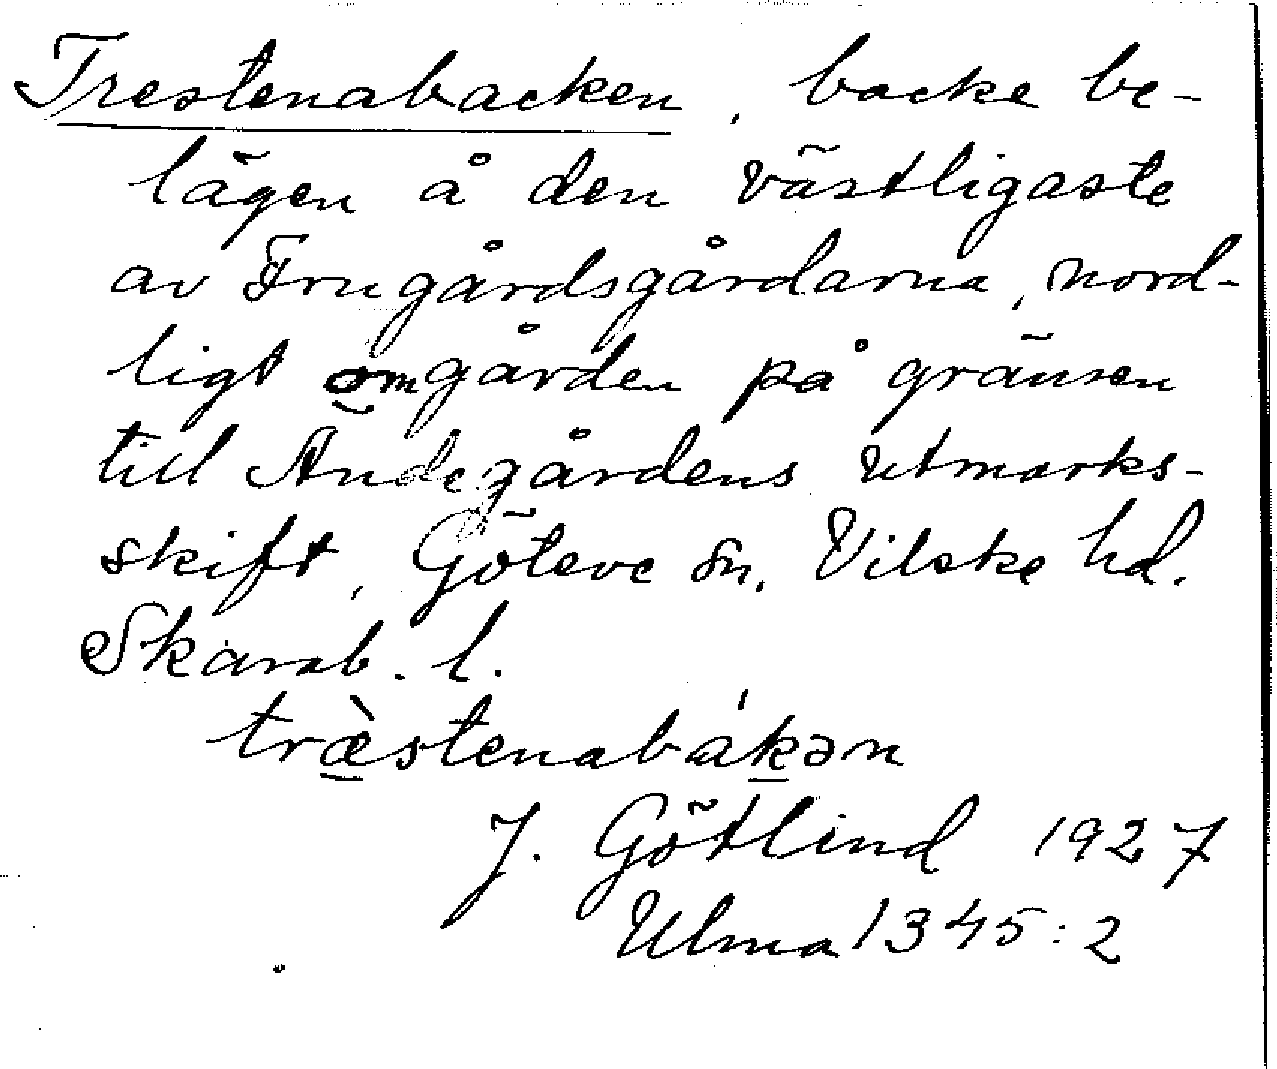 Trestenabacken, backe be-
lägen å den västligaste
av Frugårdsgårdarna, nord-
ligt om gården på gränsen
till Ändegårdens utmarks-
skift, Göteve sn. Vilske hd.
Skarab. l.
træ̀stenabákən
J. Götlind 1927
Ulma 1345:2